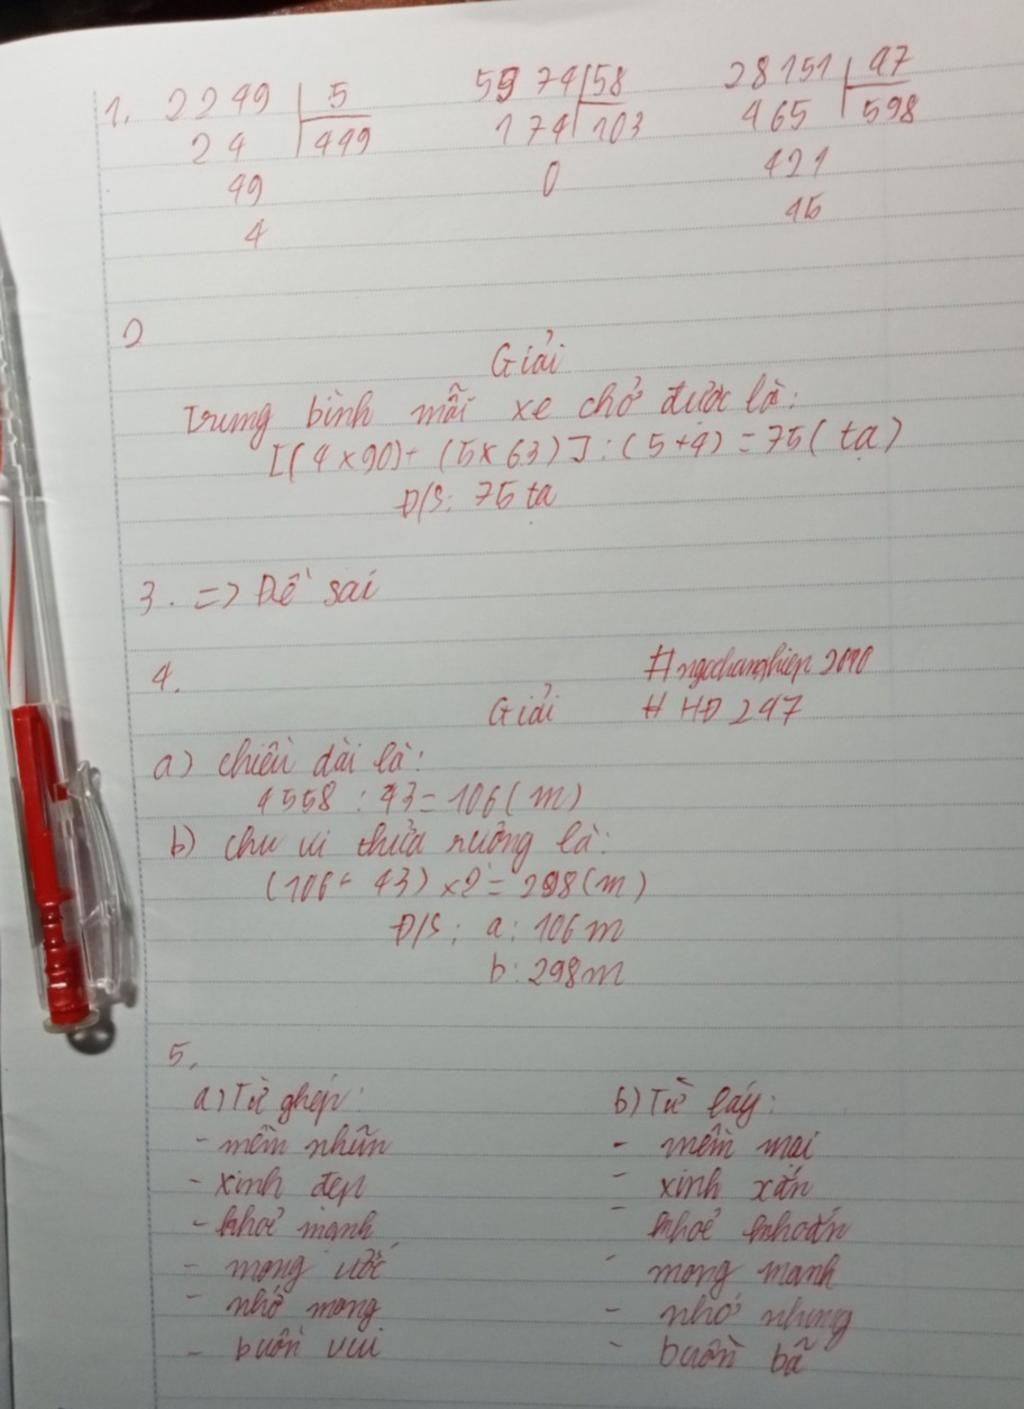 1. 2249 5 5974 58 28151 47
24 449 174 103 465 598
49 0 421
4 45
2
Giải
Trung bình mỗi xe chở được là:
[(4 x 90) + (5 x 63)] : (5 + 4) = 75 (tạ)
Đ/S: 75 tạ
3. => Đề sai
4.
# HĐ 247
Giải
a) chiều dài là:
4558 : 43 = 106 (m)
b) chu vi thửa ruộng là:
(106 + 43) x 2 = 298 (m)
Đ/S: a: 106 m
b: 298 m
5.
a) Từ ghép:
- mềm nhũn
- xinh đẹp
- khoẻ mạnh
- mong ước
- nhớ mong
- buồn vui
b) Từ láy:
- mềm mại
- xinh xắn
- khoẻ khoắn
- mong manh
- nhớ nhung
- buồn bã